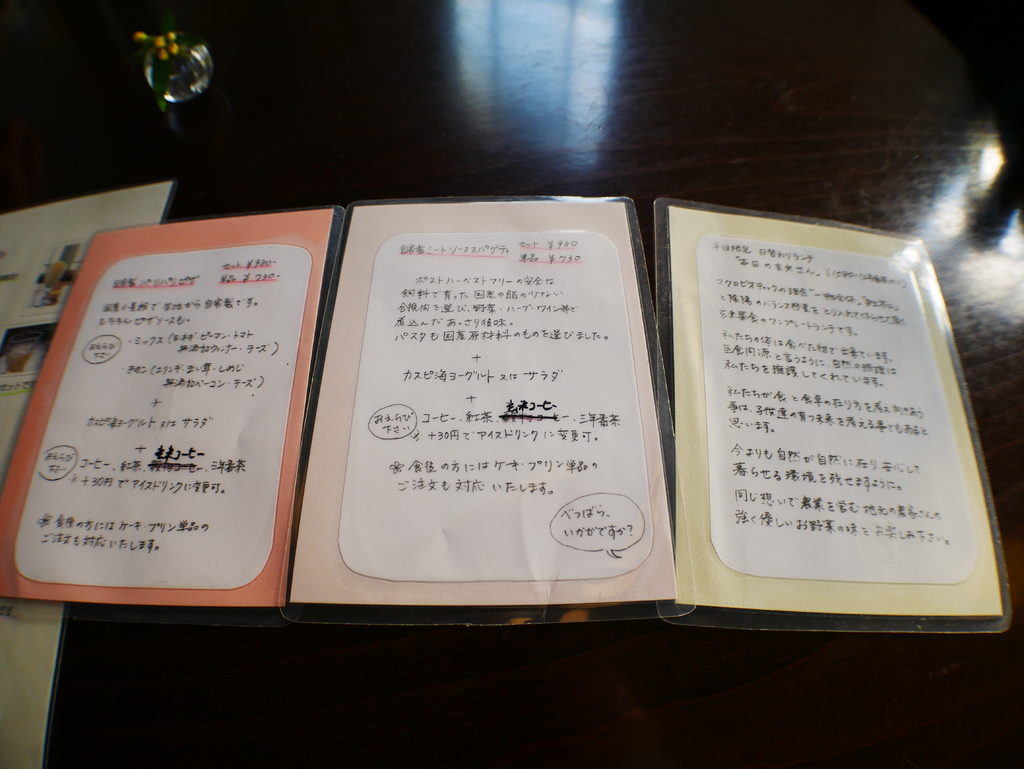 自家製パリパリピザ
セット ¥980-
単品 ¥730-
国産小麦粉で 生地から自家製です。
もちろんピザソースも。
おえらび下さい
・ミックス (玉ネギ・ピーマン・トマト
無添加ウィンナー・チーズ)
・きのこ (エリンギ・まい茸・しめじ
無添加ベーコン・チーズ)
+
カスピ海ヨーグルト 又は サラダ
+
おえらび下さい
玄米コーヒー
コーヒー、紅茶、三年番茶
※ +30円でアイスドリンクに変更可。
食後の方にはケーキ・プリン単品の
ご注文も対応いたします。
自家製ミートソーススパゲティ
セット ¥980
単品 ¥730
ポストハーベストフリーの安全な
飼料で育った国産の脂の少ない
合挽肉を選び、野菜・ハーブ・ワイン等で
煮込んだあっさり後味。
パスタも国産原材料のものを選びました。
+
カスピ海ヨーグルト 又は サラダ
+
おえらび下さい
玄米コーヒー
コーヒー、紅茶、三年番茶
※ +30円でアイスドリンクに変更可。
食後の方にはケーキ・プリン単品の
ご注文も対応いたします。
べつばら、
いかがですか?
平日限定 日替わりランチ
マクロビオティックの理念「一物全体」「身土不二」
と陰陽のバランス感覚をとり入れて
玄米菜食のワンプレートランチです。
私たちの体は食べた物で出来ています。
医食同源と言うように、自然の摂理は
私たちを擁護してくれています。
私たちが食と食卓の在り方を考え
事は、子供達の育つ未来を考える事でもあると
思います。
今よりも自然が自然に在り 安心して
暮らせる環境を残せますように。
同じ想いで農業を営む地元の農家さんの
強く優しいお野菜の味をお楽しみ下さい。